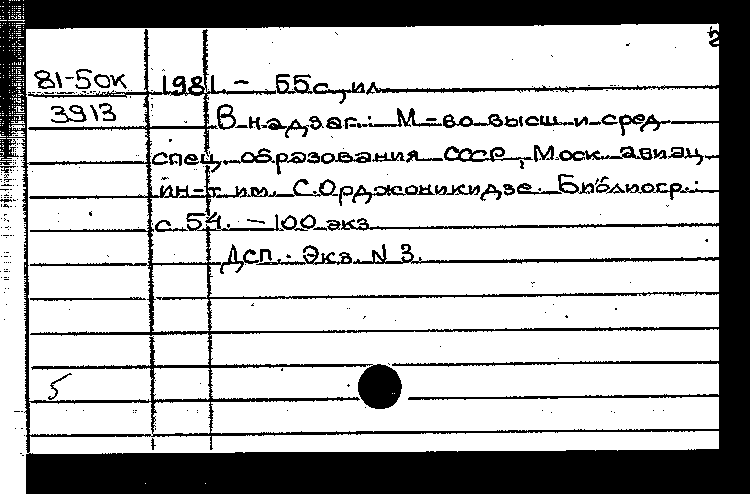 2
81-5ок 1981. - 55с., ил
3913 В надзаг.: М-во высш и сред
спец. образования СССР, Моск. авиац
ин-т им. С.Орджоникидзе. Библиогр.:
с 54. - 100 экз
Дсп.. Экз. N 3.
5